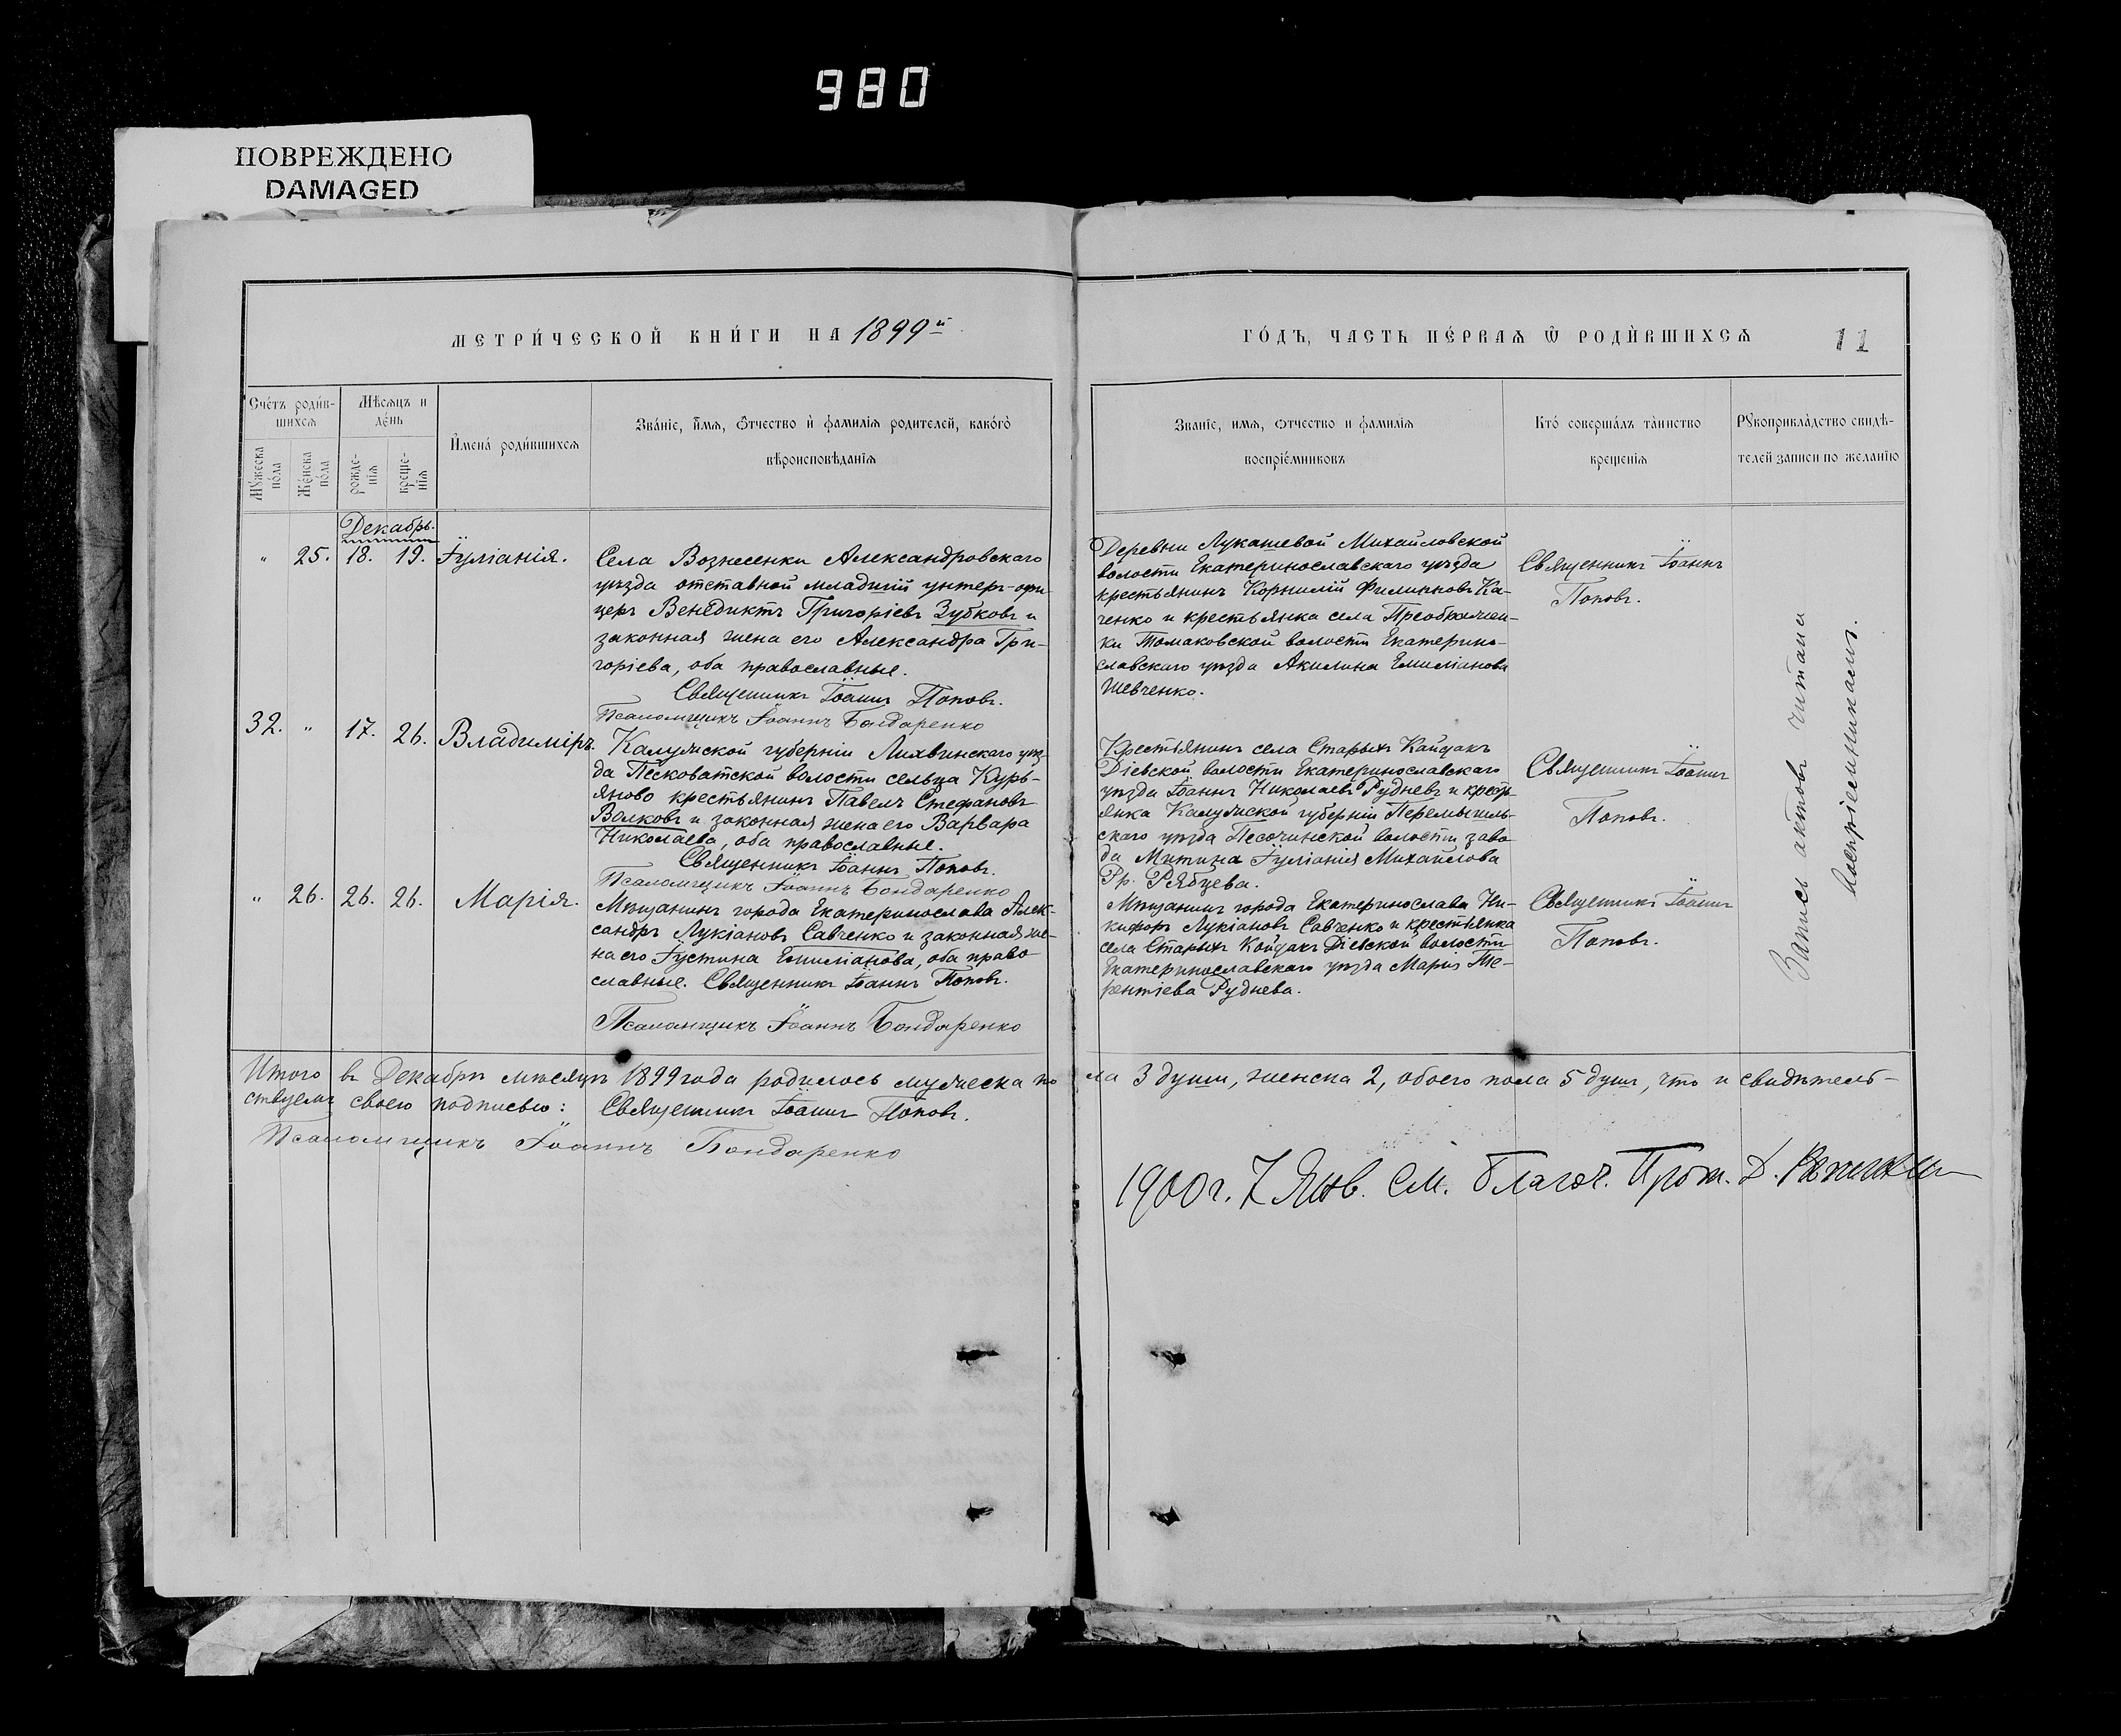 980
ПОВРЕЖДЕНО
DAMAGED
МЕТРИ́ЧЕСКОЙ КНИ́ГИ НА 1899й
ГО́ДЪ, ЧАСТЬ ПЕ́РВАѦ Ѿ РОДИ́ВШИХСѦ
11
Сче́тъ роди́в-
шихсѧ
Мѣ́сѧцъ и
де́нь
Мꙋ́жеска
по́ла
Же́нска
по́ла
рожде-
нїѧ
креще-
нїѧ
И҆мена̀ роди́вшихсѧ
Зва́нїе, и҆́мѧ, ѻ҆́тчество и҆ фамилїѧ роди́телей, како́гѡ
вѣроисповѣ́данїѧ
Зва́нїе, имѧ, ѻтчество и фамилїѧ
воспрїе́мниковъ
Кто́ соверша́лъ та́инство
креще́нїѧ
Рꙋкоприкла́дство свидѣ-
телей записи по жела́нїю
Декабрь.
" 25. 18. 19. Іуліанія.
Села Вознесенки Александровскаго
уѣзда отставной младшій унтеръ-офи-
церъ Венедиктъ Григоріевъ Зубковъ и
законная жена его Александра Гри-
горіева, оба православные.
Священникъ Іоаннъ Поповъ.
Псаломщикъ Іоаннъ Бондаренко
Деревни Лукашевой Михайловской
волости Екатеринославскаго уѣзда
крестьянинъ Корнилій Филипповъ Ка-
ченко и крестьянка села Преображен-
ки Томаковской волости Екатерино-
славскаго уѣзда Акилина Емиліанова
Шевченко.
Священникъ Іоаннъ
Поповъ.
32. " 17. 26. Владиміръ.
Калужской губерніи Лихвинскаго уѣз-
да Песковатской волости сельца Курь-
яново крестьянинъ Павелъ Стефановъ
Волковъ и законная жена его Варвара
Николаева, оба православные.
Священникъ Іоаннъ Поповъ.
Псаломщикъ Іоаннъ Бондаренко
Крестьянинъ села Старыхъ Кайдакъ
Діевской волости Екатеринославскаго
уѣзда Іоаннъ Николаевъ Рудневъ и крест-
янка Калужской губерніи Перемышль-
скаго уѣзда Песочинской волости заво-
да Митина Іуліанія Михайлова
Гр. Рябцева.
Священникъ Іоаннъ
Поповъ.
" 26. 26. 26. Марія.
Мѣщанинъ города Екатеринослава Алек-
сандръ Лукіановъ Савченко и законная же-
на его Іустина Емиліанова, оба право-
славные. Священникъ Іоаннъ Поповъ.
Псаломщикъ Іоаннъ Бондаренко
Мѣщанинъ города Екатеринослава Ни-
кифоръ Лукіановъ Савченко и крестьянка
села Старыхъ Койдакъ Діевской волости
Екатеринославскаго уѣзда Марія Те-
рентіева Руднева.
Священникъ Іоаннъ
Поповъ.
Запись актовъ читали
воспріемникамъ.
Итого въ Декабрѣ мѣсяцѣ 1899 года родилось мужеска по ла 3 души, женска 2, обоего пола 5 душъ, что и свидѣтель-
ствуемъ своею подписью: Священникъ Іоаннъ Поповъ.
Псаломщикъ Іоаннъ Бондаренко
1900 г. 7 Янв. См. Благоч. Прот. Д.